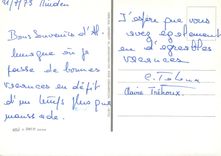 Bons Souvenirs d'Al
lemagne où je
passe de bonnes
vacances en dépit
d'un temps plus que
maussade.
J'espère que vous
avez également
eu d'agréables
vacances
Claire Tréhoux.